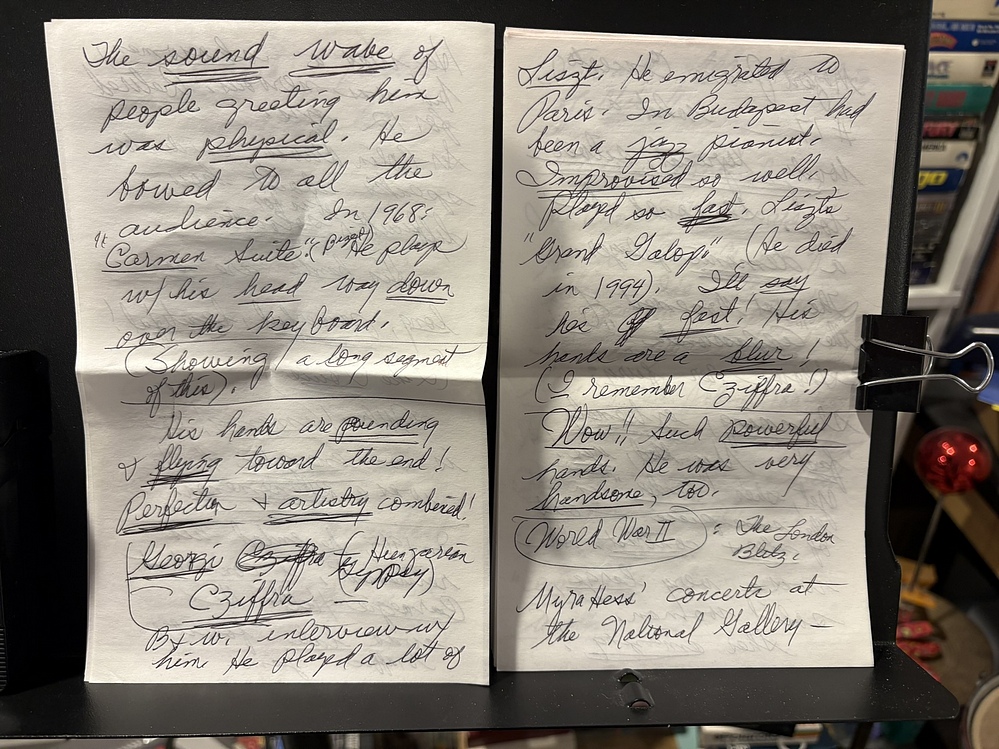 The sound wave of
people greeting him
was physical. He
bowed to all the
audience. In 1968:
"Carmen Suite". (Bizet) He plays
w/ his head way down
over the keyboard.
(Showing a long segment
of this).
His hands are pounding
& flying toward the end!
Perfection & artistry combined!
Georgi Cziffra (Hungarian
Gypsy)
Cziffra —
B+W. interview w/
him. He played a lot of
Liszt. He emigrated to
Paris. In Budapest had
been a jazz pianist.
Improvised so well.
Played so fast. Liszts
"Grand Galop" (He died
in 1994). I'll say
he's fast! His
hands are a blur!
(I remember Cziffra!)
Wow!! Such powerful
hands. He was very
handsome, too.
World War II : The London
Blitz.
Myra Hess' concerts at
the National Gallery —